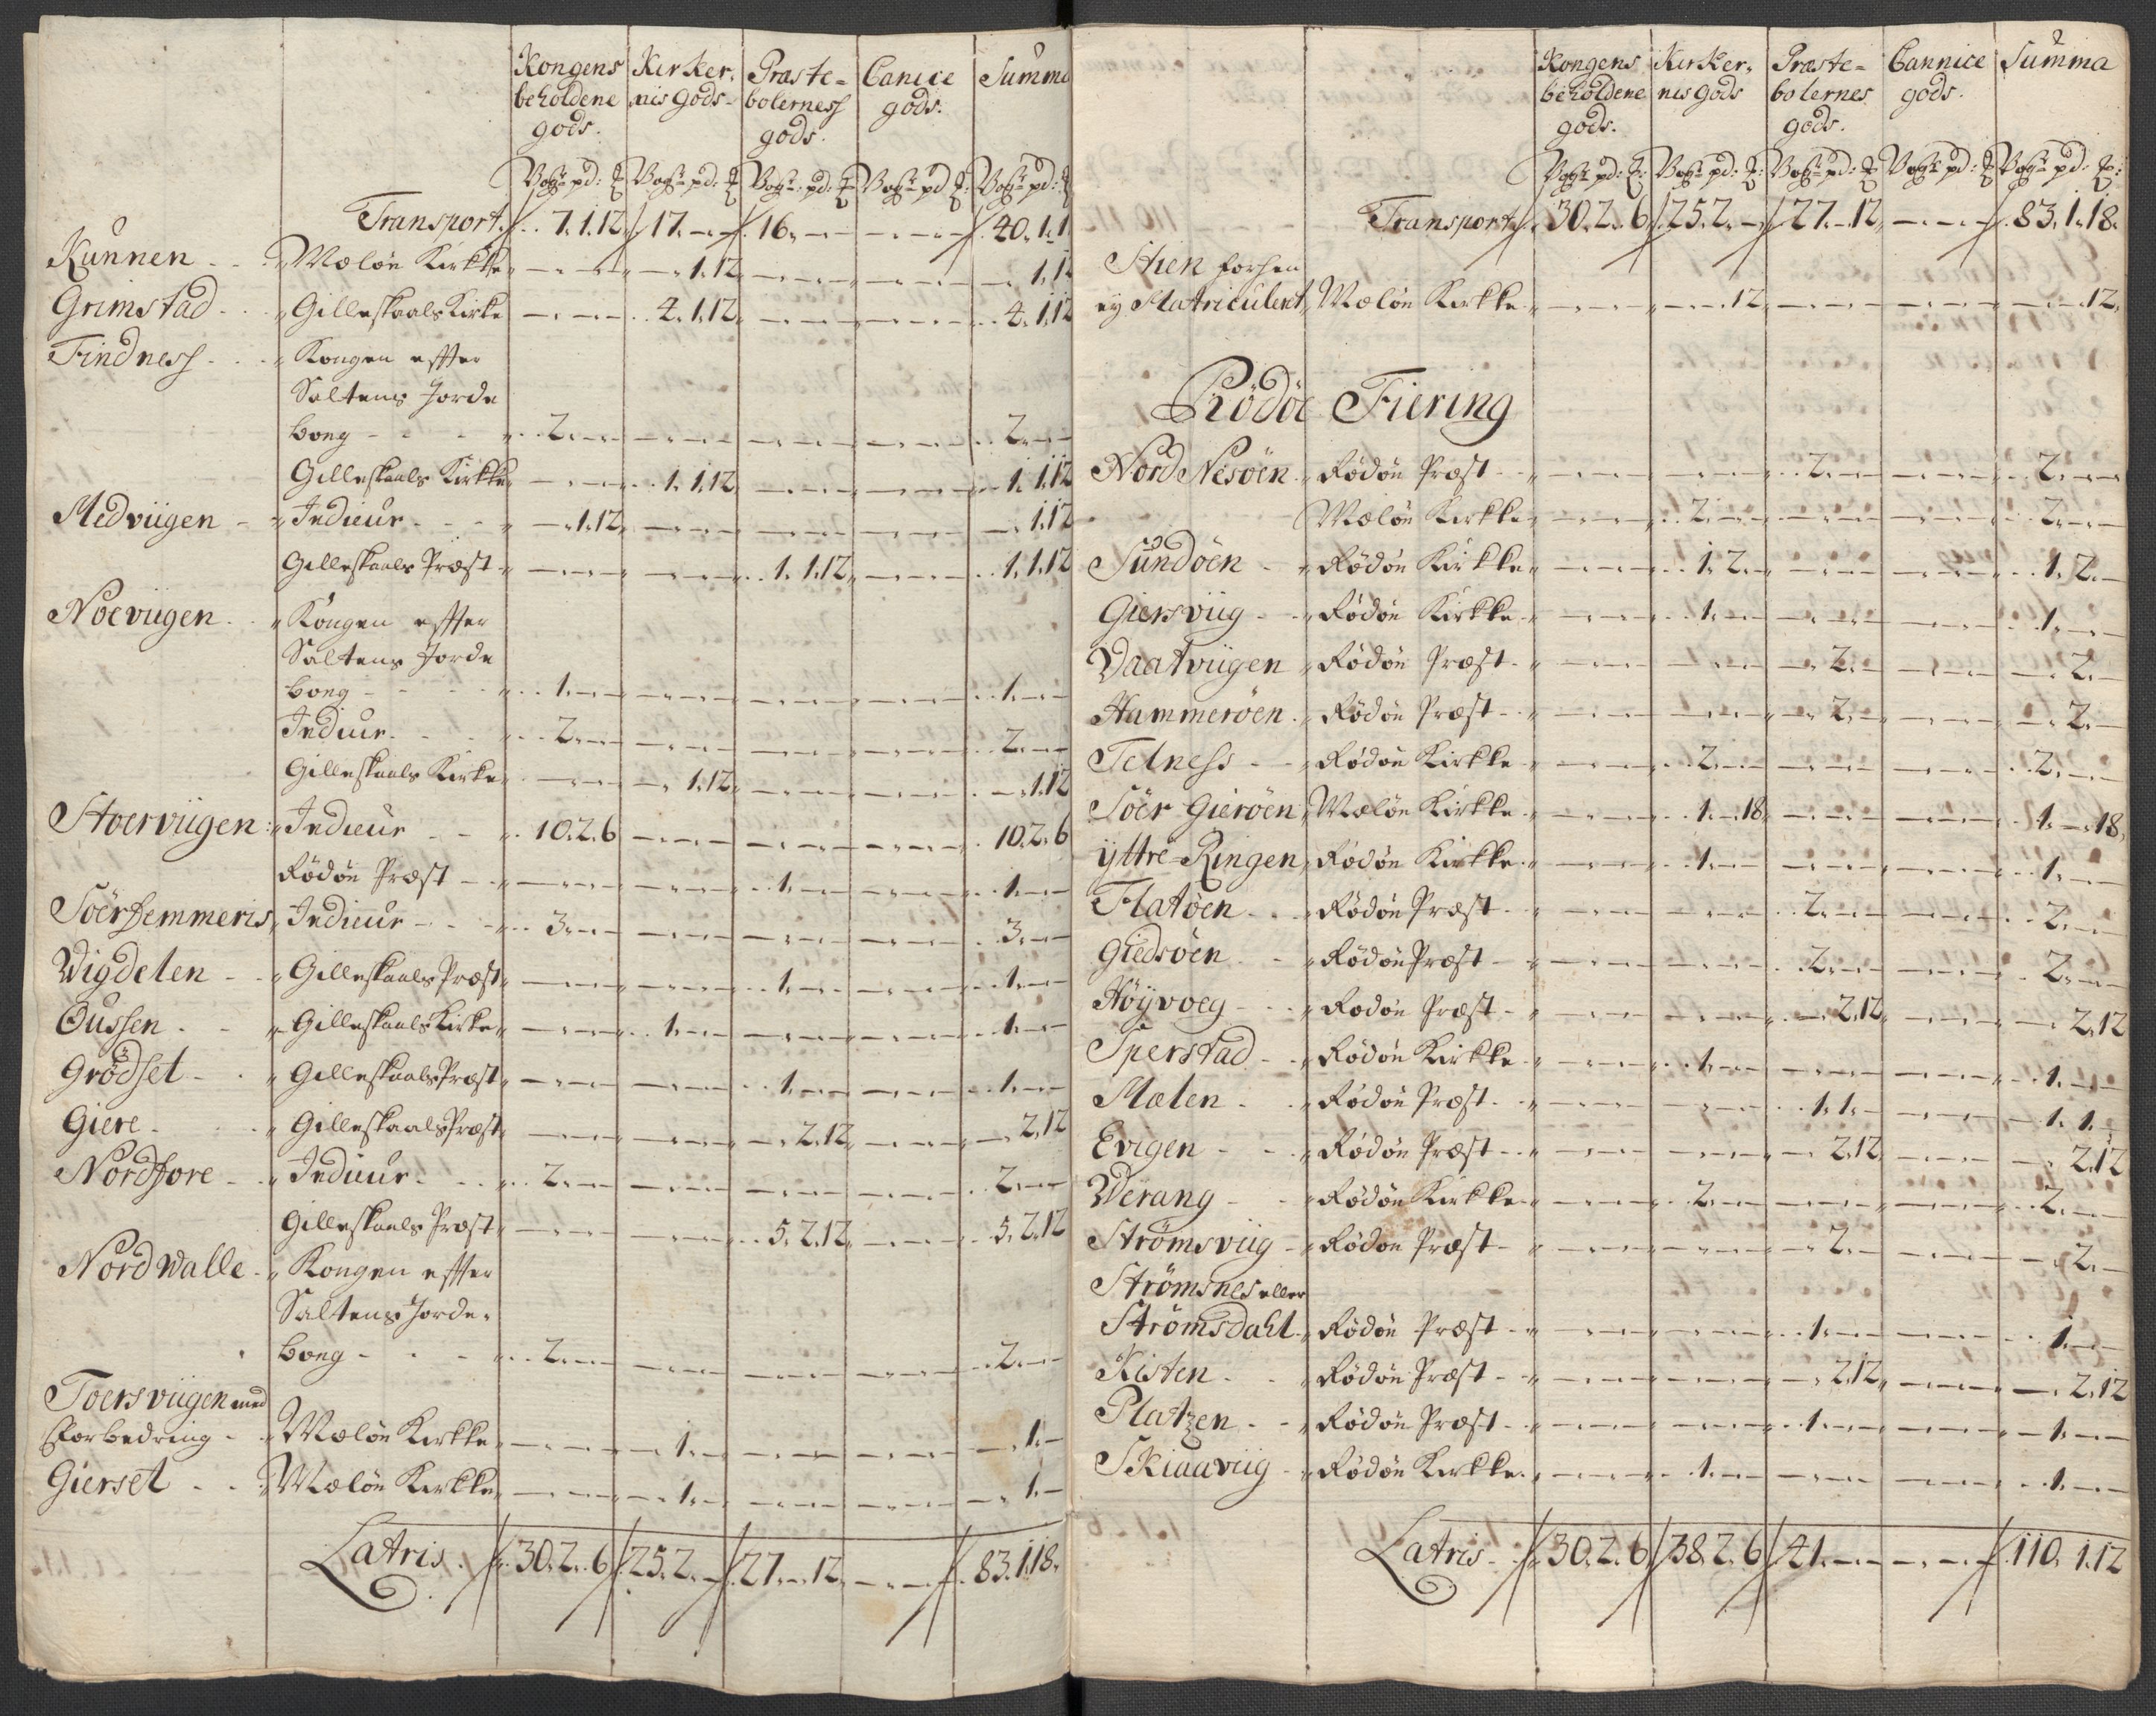 Kongens Kirker: Præste= Canice Summa
beholdene nis gods bolerness gods.
gods. gods.
Vog: pd: Vog: pd: Vog: pd: Vog: pd Vog: pd:
Transport. 7. 1. 12. 17. - - 16. - - - - - 40. 1. 1
Kunnen - - Mæløe Kirkke - - - - 1. 12. - - - - - - 1. 12
Grimstad - - Gilleskaals Kirke - - - 4. 1. 12. - - - - - - 4. 1. 12
Findness - - Kongen effter
Saltens Jorde
bog - - - 2. - - - - - - - - - - - 2. - -
Gilleskaals Kirkke - - - 1. 1. 12. - - - - - - 1. 1. 12
Medviigen - Indieur - - - - 1. 12. - - - - - - - - - - 1. 12
Gilleskaals Præst - - - - - - 1. 1. 12. - - - 1. 1. 12
Noeviigen - - Kongen effter
Saltens Jorde
bog - - - 1. - - - - - - - - - - - 1. - -
Indieur - - 2. - - - - - - - - - - - 2. - -
Gilleskaals Kirke - - - - 1. 12. - - - - - - - 1. 12
Stoerviigen: Indieur - - 10. 2. 6 - - - - - - - - - 10. 2. 6
Rødøe Præst - - - - - - - 1. - - - - - 1. - -
Soerfemmeris, Indieur - - 3. - - - - - - - - - - - 3. - -
Vigdelen - - Gilleskaals Præst - - - - - - 1. - - - - - 1. - -
Oussen - - Gilleskaals Kirke - - - 1. - - - - - - - - 1. - -
Grödset - - Gilleskaals Præst - - - - - - 1. - - - - - 1. - -
Giere - - Gilleskaals Præst - - - - - - - 2. 12. - - - - 2. 12
Nordfore - - Indieur - - 2. - - - - - - - - - - - 2. - -
Gilleskaals Præst - - - - - - 5. 2. 12. - - - 5. 2. 12
Nord Walle - Kongen effter
Saltens Jorde=
bog - - - 2. - - - - - - - - - - - 2. - -
Toersviigen med
forbedring - - Mæløe Kirkke - - - - 1. - - - - - - - - 1. -
Gierset - - Mæløe Kirkke - - - - 1. - - - - - - - - 1. -
Latris. 30. 2. 6 25. 2. - 27. - 12. - - - 83. 1. 18.
Kongens Kirker, Præste= Cannice Summa
beholdene nes gods bolernes gods.
gods. gods.
Vog: pd: Vog: pd: Vog: pd: Vog: pd: Vog: pd:
Transport 30. 2. 6 25. 2. - 27. - 12. - - - 83. 1. 18.
Stien forhen
ey Matriculert, Mæløe Kirkke - - - - - 12. - - - - - - - - 12.
Rödöe Fiering
Nord Nesöen - Rødøe Præst - - - - - - - 2. - - - - - 2. - -
Mæløe Kirkke - - - - 2. - - - - - - - - 2. - -
Sundöen - Rødøe Kirkke - - - - 1. 2. - - - - - - - 1. 2. -
Giersviig - - Rødøe Kirkke - - - - 1. - - - - - - - - 1. - -
Vaatviigen Rødøe Præst - - - - - - - - 2. - - - - - 2. -
Hammeröen - Rødøe Præst - - - - - - - - 2. - - - - - 2. -
Telness - - Rødøe Kirkke - - - - 2. - - - - - - - - 2. - -
Söer Gieröen Mæløe Kirkke - - - - 1. - 18. - - - - - - 1. - 18.
yttre=Ringen, Rødøe Kirkke - - - - 1. - - - - - - - - 1. - -
Flatöen - - Rødøe Præst - - - - - - - 2. - - - - - 2. - -
Giedsöen - - Rødøe Præst - - - - - - - 2. - - - - - 2. - -
Höyvoeg - - Rødøe Præst - - - - - - - - 2. 12. - - - - 2. 12
Sperstad - - Rødøe Kirkke - - - - 1. - - - - - - - - 1. - -
Mælen - - Rødøe Præst - - - - - - - 1. 1. - - - - 1. 1. -
Evigen - - Rødøe Præst - - - - - - - - 2. 12. - - - - 2. 12
Werang - - Rødøe Kirkke - - - - 2. - - - - - - - - 2. - -
Strömsviig - Rødøe Præst - - - - - - - - 2. - - - - - 2. -
Strömsnes eller
Strömsdahl - Rødøe Præst - - - - - - - 1. - - - - - 1. - -
Kisten - - Rødøe Præst - - - - - - - - 2. 12. - - - - 2. 12
Platzen - - Rødøe Præst - - - - - - - 1. - - - - - 1. - -
Skiaaviig - Rødøe Kirkke - - - - 1. - - - - - - - - 1. - -
Latris. 30. 2. 6 38. 2. 6 41. - - - - - 110. 1. 12